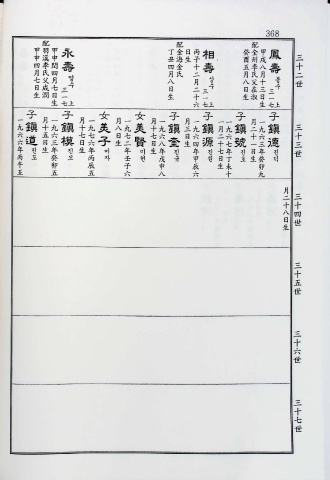 368
三十二世
鳳壽 봉수
三一七上
甲戌八月十三日生
配全州李氏父在淑
癸酉五月八日生
相壽 상수
三一七上
丙子十二月二十六
日生
配金海金氏
丁丑四月八日生
永壽 영수
三一七上
甲申閏四月七日生
配羽溪李氏父成潤
甲申四月七日生
三十三世
子鎭德 진덕
一九六三年癸卯九
月二十一日生
子鎭號 진호
一九六七年丁未十
一月二十七日生
子鎭源 진원
一九六四年甲辰六
月三日生
子鎭奎 진규
一九六八年戊申八
月十七日生
女美賢 미현
一九七二年壬子六
月八日生
女美子 미자
一九七六年丙辰五
月十七日生
子鎭模 진모
一九六三年癸卯五
月十五日生
子鎭道 진도
一九六六年丙午五
三十四世
月二十八日生
三十五世
三十六世
三十七世